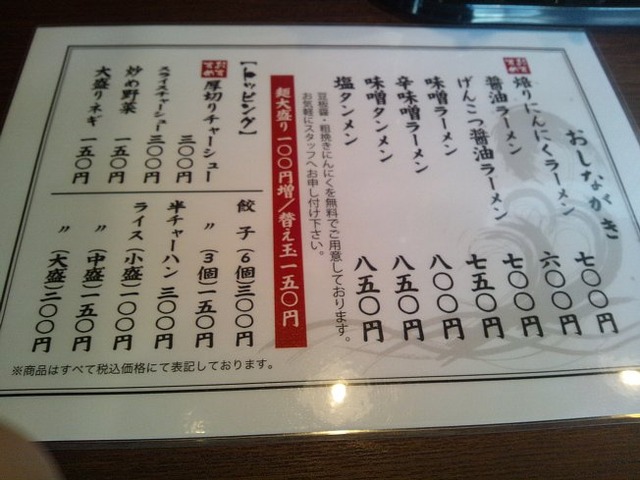 おしながき
おすすめ 焙りにんにくラーメン 七〇〇円
醤油ラーメン 六〇〇円
げんこつ醤油ラーメン 七〇〇円
味噌ラーメン 七五〇円
辛味噌ラーメン 八〇〇円
味噌タンメン 八五〇円
塩タンメン 八五〇円
豆板醤・粗挽きにんにくを無料でご用意しております。
お気軽にスタッフへお申し付け下さい。
麺大盛り一〇〇円増/替え玉一五〇円
【トッピング】
おすすめ 厚切りチャーシュー 三〇〇円
スライスチャーシュー 三〇〇円
炒め野菜 一五〇円
大盛りネギ 一五〇円
餃子(6個)三〇〇円
〃(3個)一五〇円
半チャーハン 三〇〇円
ライス(小盛)一〇〇円
〃(中盛)一五〇円
〃(大盛)二〇〇円
※商品はすべて税込価格にて表記しております。